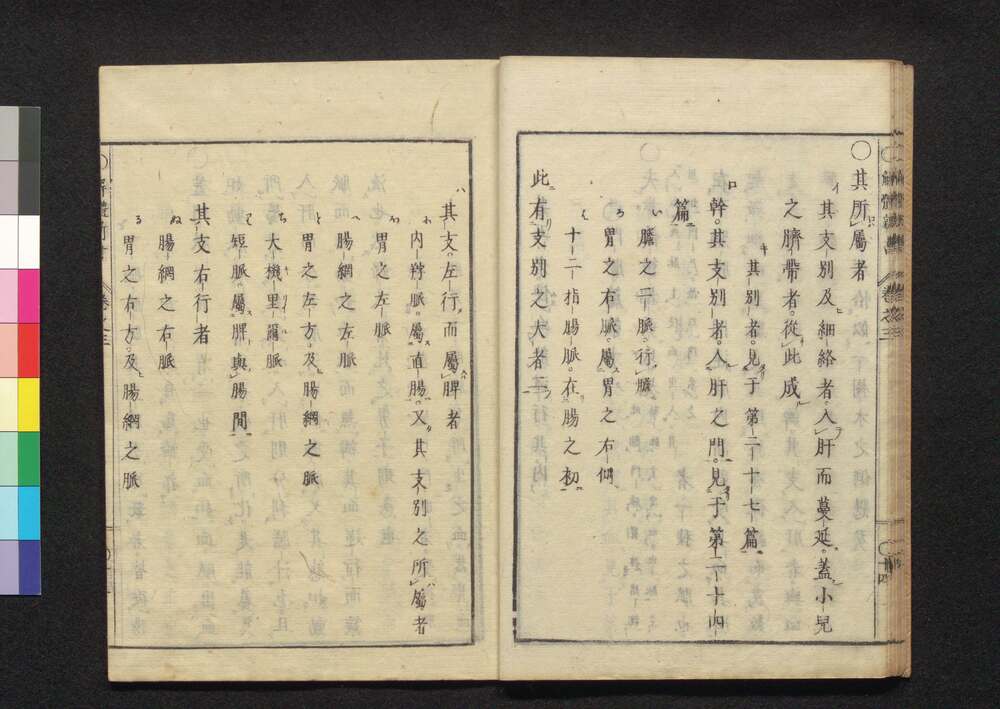 〇其所屬者
イ其支別及細絡者入肝而蔓延蓋小兒
之臍帶者從此成
其別者見于第二十七篇
ロ幹其支別者入肝之門見于第二十四
篇
い膽之二脈行膽
ろ胃之右脈屬胃之右側
は十二指腸脈在腸之初
此有支別之大者二
ハ其支左行而屬脾者
內痔脈屬直腸又其支別之所屬者
胃之左脈
腸網之左脈
と胃之左方及腸網之脈
ち大機里爾脈
短脈屬脾與腸間
其支右行者
ぬ腸網之右脈
る胃之右方及腸網之脈
解體新書
卷之三